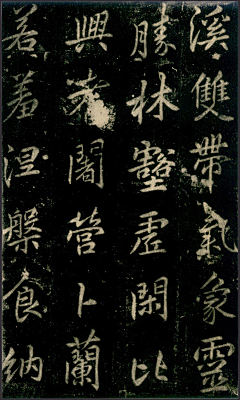 溪雙帶氣象靈
勝林壑虛閑比
興闍營卜蘭
若羞涅槃食納